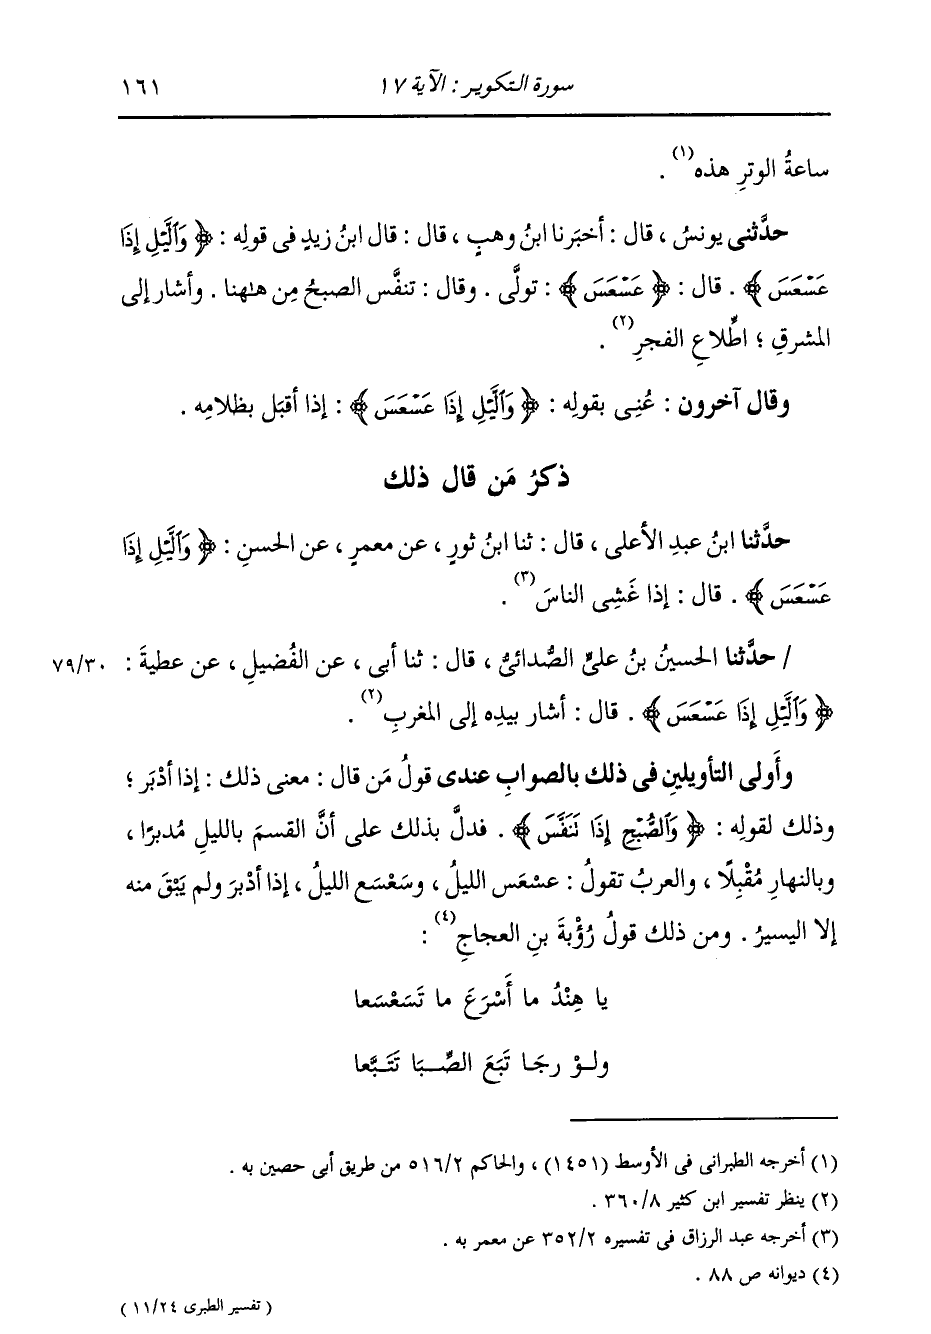 سورة التكوير : الآية ١٧ ١٦١
ساعةُ الوترِ هذه(١) .
حدَّثنى يونسُ ، قال : أخبَرنا ابنُ وهبٍ ، قال : قال ابنُ زيدٍ فى قولِه : ﴿ وَٱلَّيْلِ إِذَا
عَسْعَسَ ﴾ . قال : ﴿ عَسْعَسَ ﴾ : تولَّى . وقال : تنفَّس الصبحُ مِن هلهنا . وأشار إلى
المشرقِ ؛ اطِّلاعِ الفجرِ(٢) .
وقال آخرون : عُنِى بقولِه : ﴿ وَٱلَّيْلِ إِذَا عَسْعَسَ ﴾ : إذا أقبَل بظلامِه .
ذكرُ مَن قال ذلك
حدَّثنا ابنُ عبدِ الأعلى ، قال : ثنا ابنُ ثورٍ ، عن معمرٍ ، عن الحسنِ : ﴿ وَٱلَّيْلِ إِذَا
عَسْعَسَ ﴾ . قال : إذا غَشِى الناسَ(٣) .
/ حدَّثنا الحسينُ بنُ علىٍّ الصُّدائىُّ ، قال : ثنا أبى ، عن الفُضيلِ ، عن عطيةَ : ٧٩/٣٠
﴿ وَٱلَّيْلِ إِذَا عَسْعَسَ ﴾ . قال : أشار بيدِه إلى المغربِ(٢) .
وأَولى التأويلين فى ذلك بالصوابِ عندى قولُ مَن قال : معنى ذلك : إذا أدْبَر ؛
وذلك لقولِه : ﴿ وَٱلصُّبْحِ إِذَا تَنَفَّسَ ﴾ . فدلَّ بذلك على أنَّ القسمَ بالليلِ مُدبرًا ،
وبالنهارِ مُقْبِلًا ، والعربُ تقولُ : عسْعَس الليلُ ، وسَعْسَع الليلُ ، إذا أدْبرَ ولم يَبْقَ منه
إلا اليسيرُ . ومن ذلك قولُ رُؤْبةَ بنِ العجاجِ(٤) :
يا هِنْدُ ما أَسْرَعَ ما تَسَعْسَعا
ولـوْ رجَـا تَبَعَ الصِّـبَا تَتَـبَّعا
(١) أخرجه الطبرانى فى الأوسط (١٤٥١) ، والحاكم ٥١٦/٢ من طريق أبى حصين به .
(٢) ينظر تفسير ابن كثير ٣٦٠/٨ .
(٣) أخرجه عبد الرزاق فى تفسيره ٣٥٢/٢ عن معمر به .
(٤) ديوانه ص ٨٨ .
( تفسير الطبرى ١١/٢٤ )